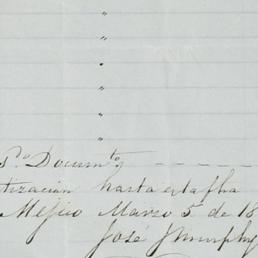 "
"
"
"
"
p.º Documt.º - - - -
tización hasta esta fha
Mejico Marzo 5 de 18
José J Murphy